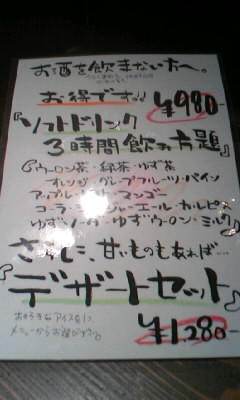 お酒を飲まない方へ。
お得です!! ¥980-
『ソフトドリンク
3時間飲み放題』
ウーロン茶・緑茶・ゆず茶
オレンジ・グレープフルーツ・パイン
アップル・マンゴー
コーラ・ジンジャーエール・カルピス
ゆずソーダ・ゆずウーロン・ミルク
さらに、甘いものもあれば…
『デザートセット』
お好きなアイスを1つ
メニューからお選び下さい。
¥1.280-